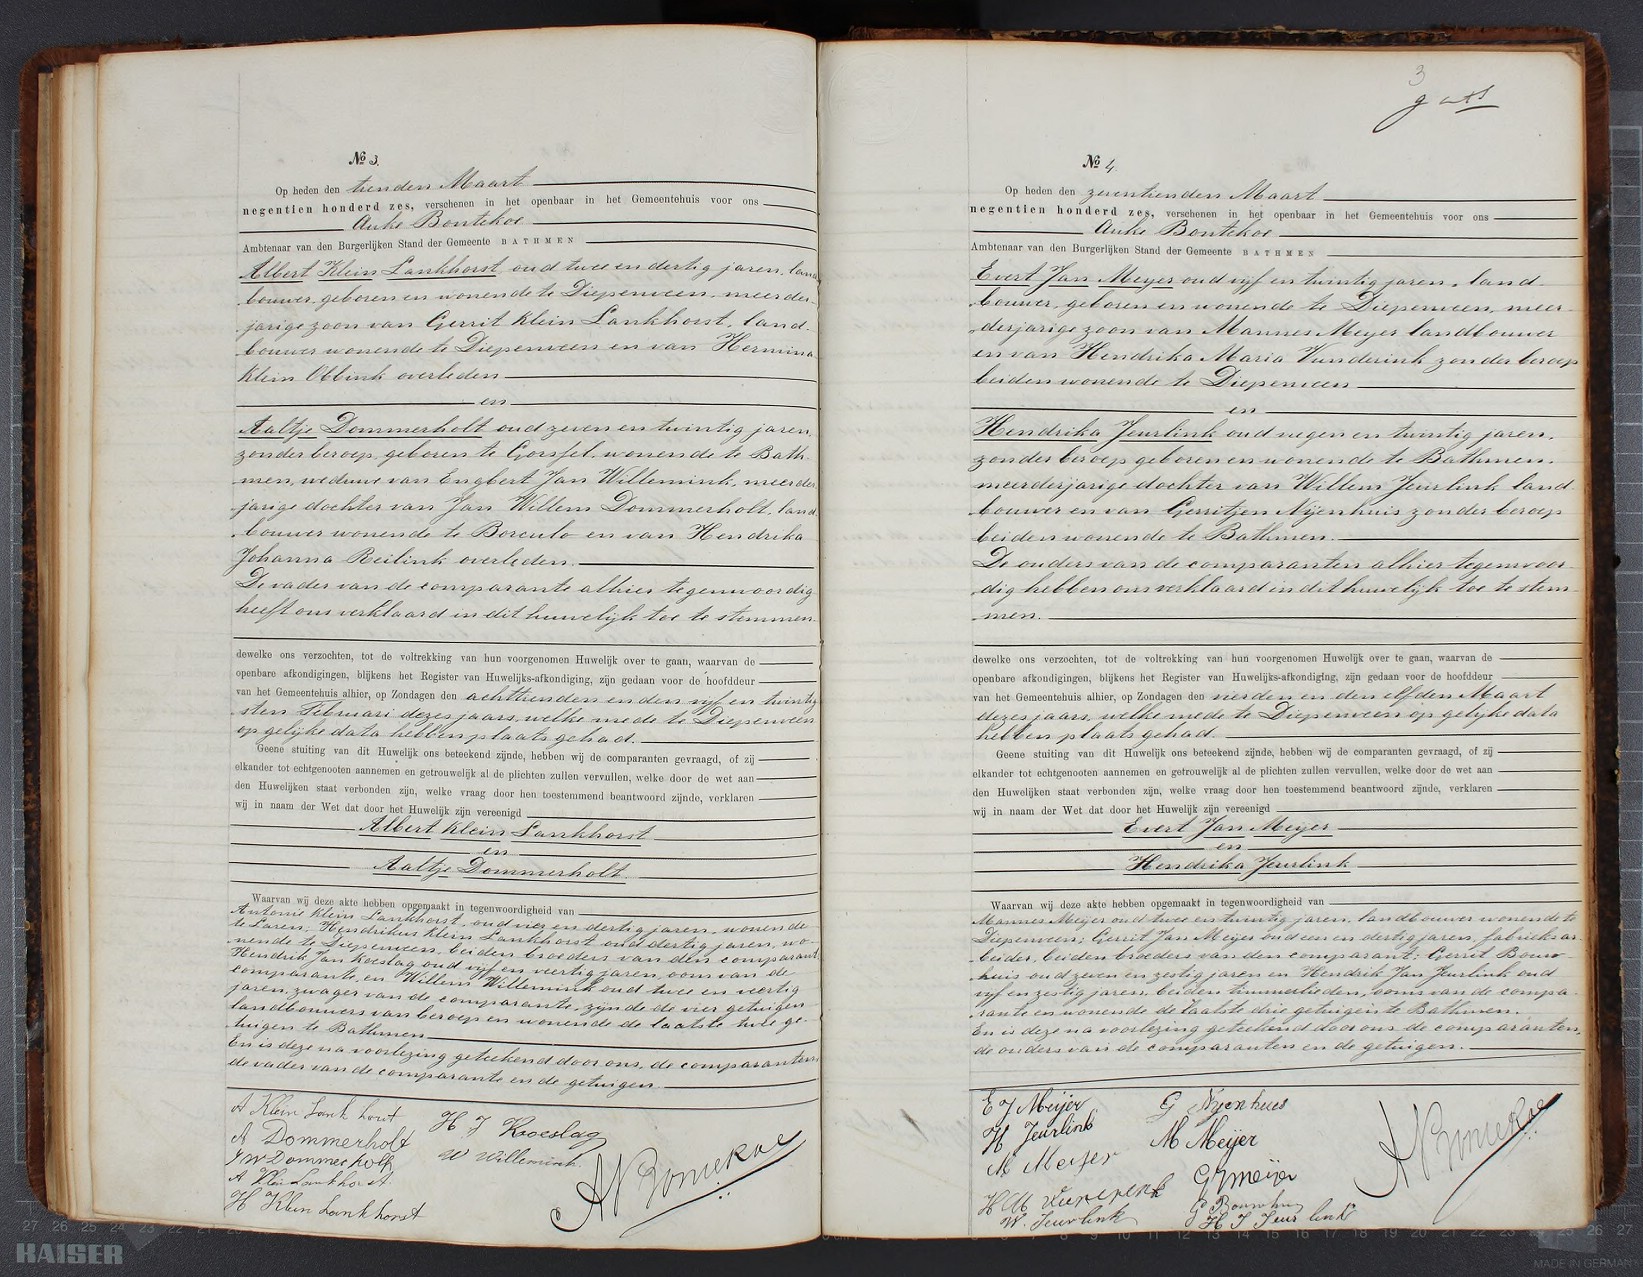 No 3.
Op heden den tienden Maart
negentien honderd zes, verschenen in het openbaar in het Gemeentehuis voor ons
Auke Bontekoe
Ambtenaar van den Burgerlijken Stand der Gemeente BATHMEN
Albert Klein Lankhorst oud twee en dertig jaren, land
bouwer, geboren en wonende te Diepenveen, meerder-
jarige zoon van Gerrit Klein Lankhorst, land-
bouwer wonende te Diepenveen en van Hermina
Klein Obbink overleden
en
Aaltje Dommerholt oud zeven en twintig jaren,
zonder beroep, geboren te Gorssel, wonende te Bath-
men, weduwe van Engbert Jan Willemink, meerder
jarige dochter van Jan Willem Dommerholt, land
bouwer wonende te Borculo en van Hendrika
Johanna Reilink overleden.
De vader van de comparante alhier tegenwoordig
heeft ons verklaard in dit huwelijk toe te stemmen.
dewelke ons verzochten, tot de voltrekking van hun voorgenomen Huwelijk over te gaan, waarvan de
openbare afkondigingen, blijkens het Register van Huwelijks-afkondiging, zijn gedaan voor de hoofddeur
van het Gemeentehuis alhier, op Zondagen den achttienden en den vijf en twintig
sten Februari dezes jaars, welke mede te Diepenveen
op gelijke data hebben plaats gehad.
Geene stuiting van dit Huwelijk ons beteekend zijnde, hebben wij de comparanten gevraagd, of zij
elkander tot echtgenooten aannemen en getrouwelijk al de plichten zullen vervullen, welke door de wet aan
den Huwelijken staat verbonden zijn, welke vraag door hen toestemmend beantwoord zijnde, verklaren
wij in naam der Wet dat door het Huwelijk zijn vereenigd
Albert Klein Lankhorst
en
Aaltje Dommerholt
Waarvan wij deze akte hebben opgemaakt in tegenwoordigheid van
Antonie Klein Lankhorst, oud vier en dertig jaren, wonende
te Laren, Hendrikus Klein Lankhorst oud dertig jaren, wo-
nende te Diepenveen, beiden broeders van den comparant
Hendrik Jan Koeslag oud vijf en veertig jaren, oom van de
comparante, en Willem Willemink oud twee en veertig
jaren, zwager van de comparante, zijnde de vier getuigen
landbouwers van beroep en wonende de laatste twee ge-
tuigen te Bathmen
En is deze na voorlezing geteekend door ons, de comparanten
de vader van de comparante en de getuigen.
A Klein Lankhorst
A Dommerholt
J W Dommerholt
A Klein Lankhorst
H Klein Lankhorst
H J Koeslag
W Willemink
A Bontekoe
3
No 4.
Op heden den zeventienden Maart
negentien honderd zes, verschenen in het openbaar in het Gemeentehuis voor ons
Auke Bontekoe
Ambtenaar van den Burgerlijken Stand der Gemeente BATHMEN
Evert Jan Meyer oud vijf en twintig jaren, land-
bouwer, geboren en wonende te Diepenveen, meer-
derjarige zoon van Mannes Meyer landbouwer
en van Hendrika Maria Vunderink zonder beroep
beiden wonende te Diepenveen
en
Hendrika Jeurlink oud negen en twintig jaren,
zonder beroep geboren en wonende te Bathmen,
meerderjarige dochter van Willem Jeurlink land-
bouwer en van Gerritjen Nijenhuis zonder beroep
beiden wonende te Bathmen.
De ouders van de comparanten alhier tegenwoor-
dig hebben ons verklaard in dit huwelijk toe te stem-
men.
dewelke ons verzochten, tot de voltrekking van hun voorgenomen Huwelijk over te gaan, waarvan de
openbare afkondigingen, blijkens het Register van Huwelijks-afkondiging, zijn gedaan voor de hoofddeur
van het Gemeentehuis alhier, op Zondagen den vierden en den elfden Maart
dezes jaars, welke mede te Diepenveen op gelijke data
hebben plaats gehad.
Geene stuiting van dit Huwelijk ons beteekend zijnde, hebben wij de comparanten gevraagd, of zij
elkander tot echtgenooten aannemen en getrouwelijk al de plichten zullen vervullen, welke door de wet aan
den Huwelijken staat verbonden zijn, welke vraag door hen toestemmend beantwoord zijnde, verklaren
wij in naam der Wet dat door het Huwelijk zijn vereenigd
Evert Jan Meyer
en
Hendrika Jeurlink
Waarvan wij deze akte hebben opgemaakt in tegenwoordigheid van
Mannes Meyer oud twee en twintig jaren, landbouwer wonende te
Diepenveen; Gerrit Jan Meijer oud een en dertig jaren, fabrieksar-
beider, beiden broeders van den comparant; Gerrit Bouw-
huis oud zeven en zestig jaren en Hendrik Jan Jeurlink oud
vijf en zestig jaren, beiden timmerlieden, ooms van de compa-
rante en wonende de laatste drie getuigen te Bathmen.
En is deze na voorlezing geteekend door ons, de comparanten,
de ouders van de comparanten en de getuigen.
E J Meijer
H Jeurlink
M Meijer
W. Jeurlink
G Nijenhues
M Meijer
G J meijer
G Bouwhuis
H J Jeurlink
A Bontekoe
KAISER
MADE IN GERMANY